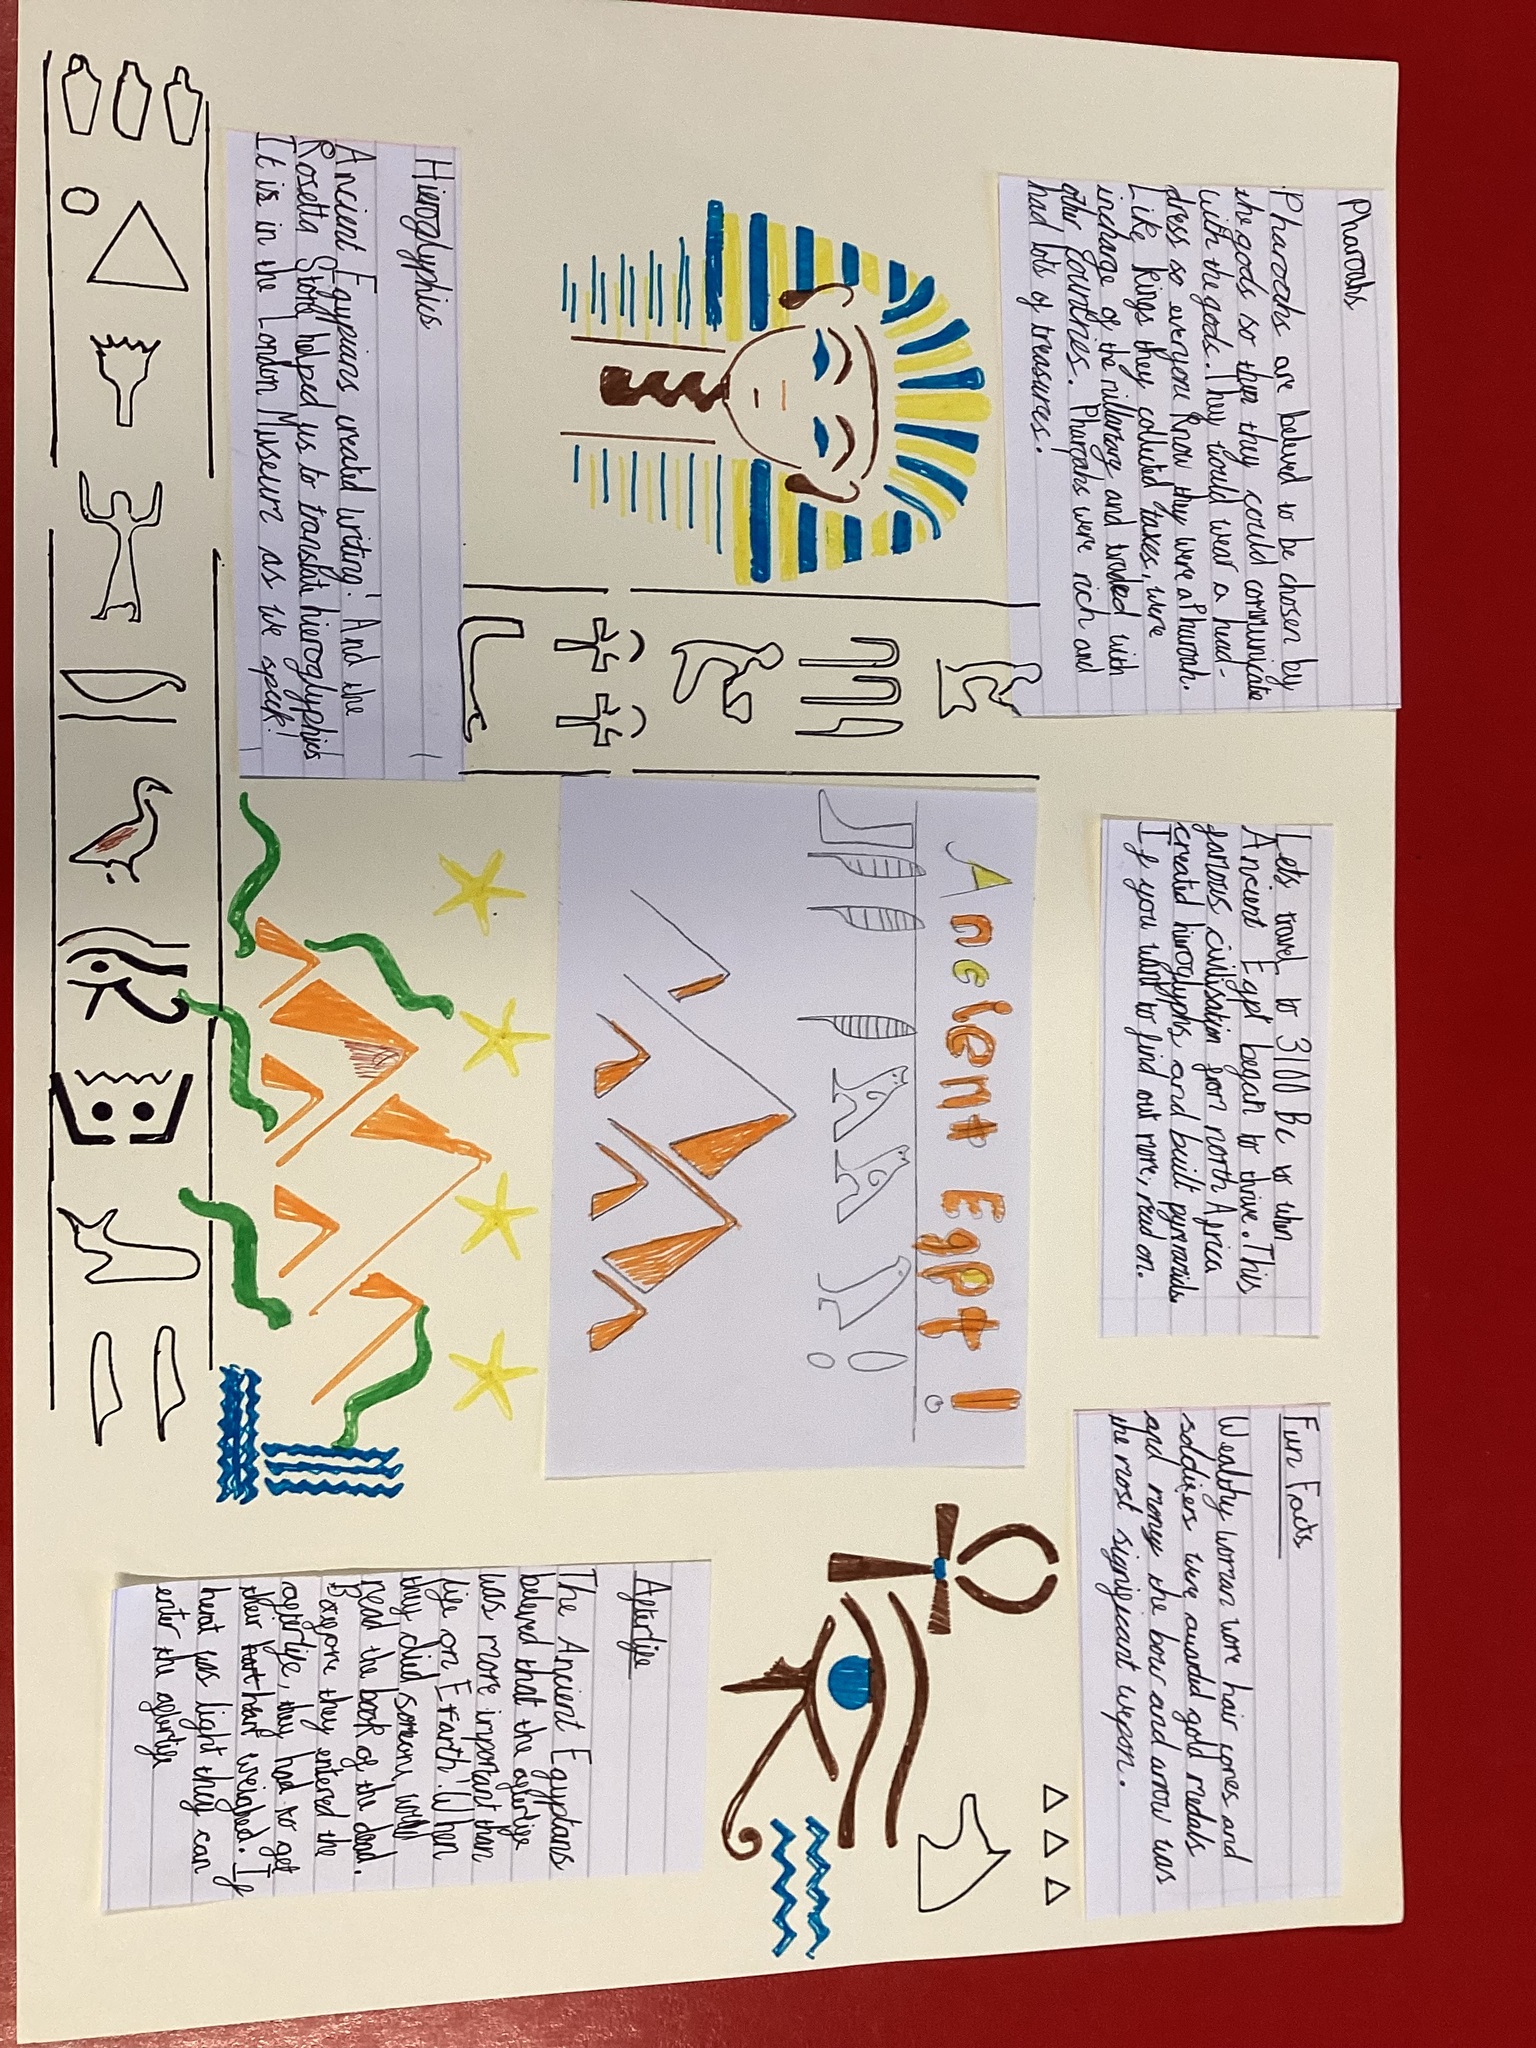 Pharoahs
Pharoahs are beleved to be chosen by
the gods so then they could communicate
with the gods. They would wear a head-
dress so everyone know they were a Pharoah.
Like kings they collected taxes, were
incharge of the millitary and traded with
other countries. Pharoahs were rich and
had lots of treasures.
Lets travel to 3100 Bc to when
Ancient Egpt began to thrive. This
famous civilisation from north Africa
created hieroglyphs and built pyramids.
If you want to find out more, read on.
Fun Facts
Wealthy woman wore hair cones and
soldiers were awarded gold medals
and money the bow and arrow was
the most significant wepon.
Ancient Egpt!
Hieroglyphics
Ancient Egypians created writing! And the
Rosetta Stone helped us to translate hieroglyphics
It is in the London Museum as we speak!
Afterlife
The Ancient Egyptans
beleved that the afterlife
was more important than
life on Earth! When
they died someone would
read the book of the dead.
Before they entered the
afterlife, they had to get
their heart weighed. If
heart was light they can
enter the afterlife